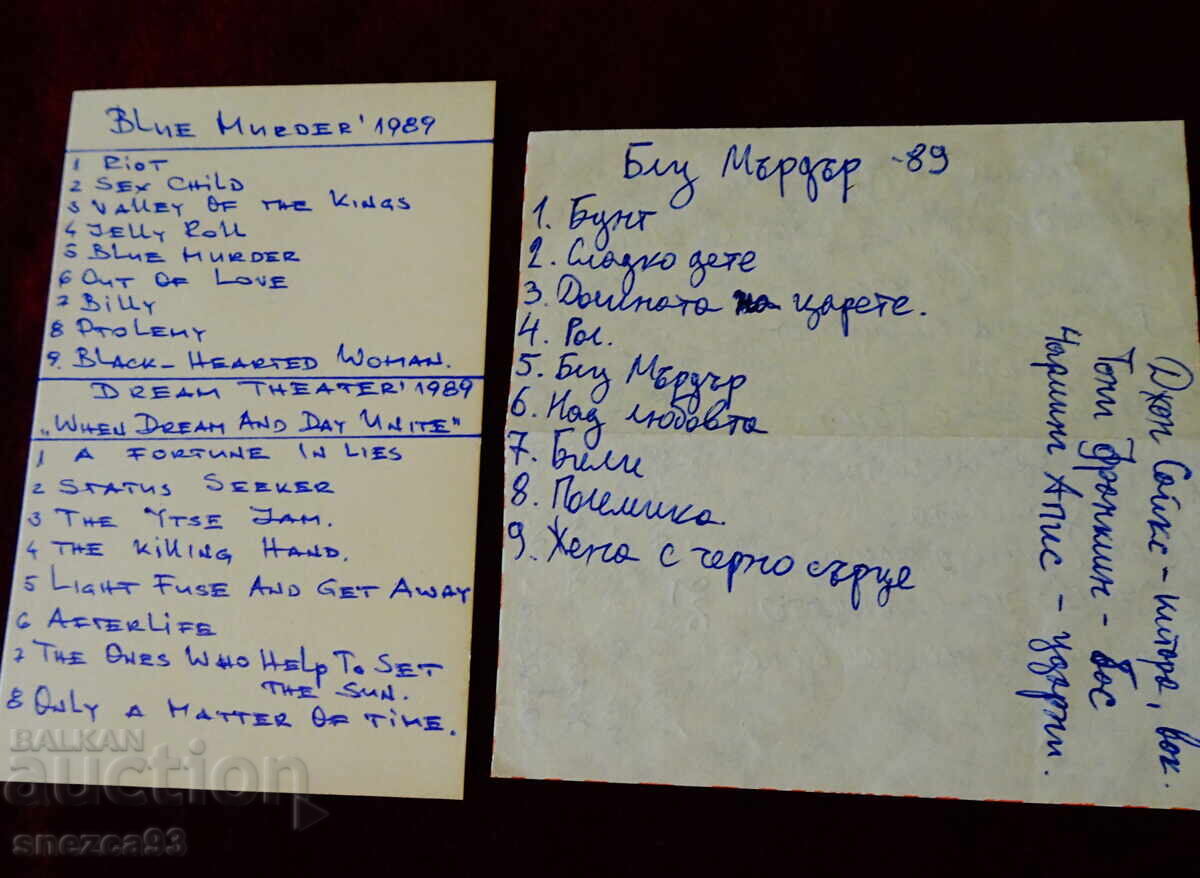 BLUE MURDER' 1989
1 RIOT
2 SEX CHILD
3 VALLEY OF THE KINGS
4 JELLY ROLL
5 BLUE MURDER
6 OUT OF LOVE
7 BILLY
8 PTOLEMY
9. BLACK-HEARTED WOMAN.
DREAM THEATER' 1989
„WHEN DREAM AND DAY UNITE"
1 A FORTUNE IN LIES
2 STATUS SEEKER
3 THE YTSE JAM.
4 THE KILLING HAND.
5 LIGHT FUSE AND GET AWAY
6 AFTERLIFE
7 THE ONES WHO HELP TO SET
THE SUN.
8 ONLY A MATTER OF TIME.
Блу Мърдър -89
1. Бунт
2. Сладко дете
3. Долината на царете.
4. Рол.
5. Блу Мърдър
6. Над любовта
7. Били
8. Полемика.
9. Жена с черно сърце
Джон Сайкс - китара, вок.
Тони Франклин - бас
Кармин Апис - ударни.
BALKAN
auction
snezca93